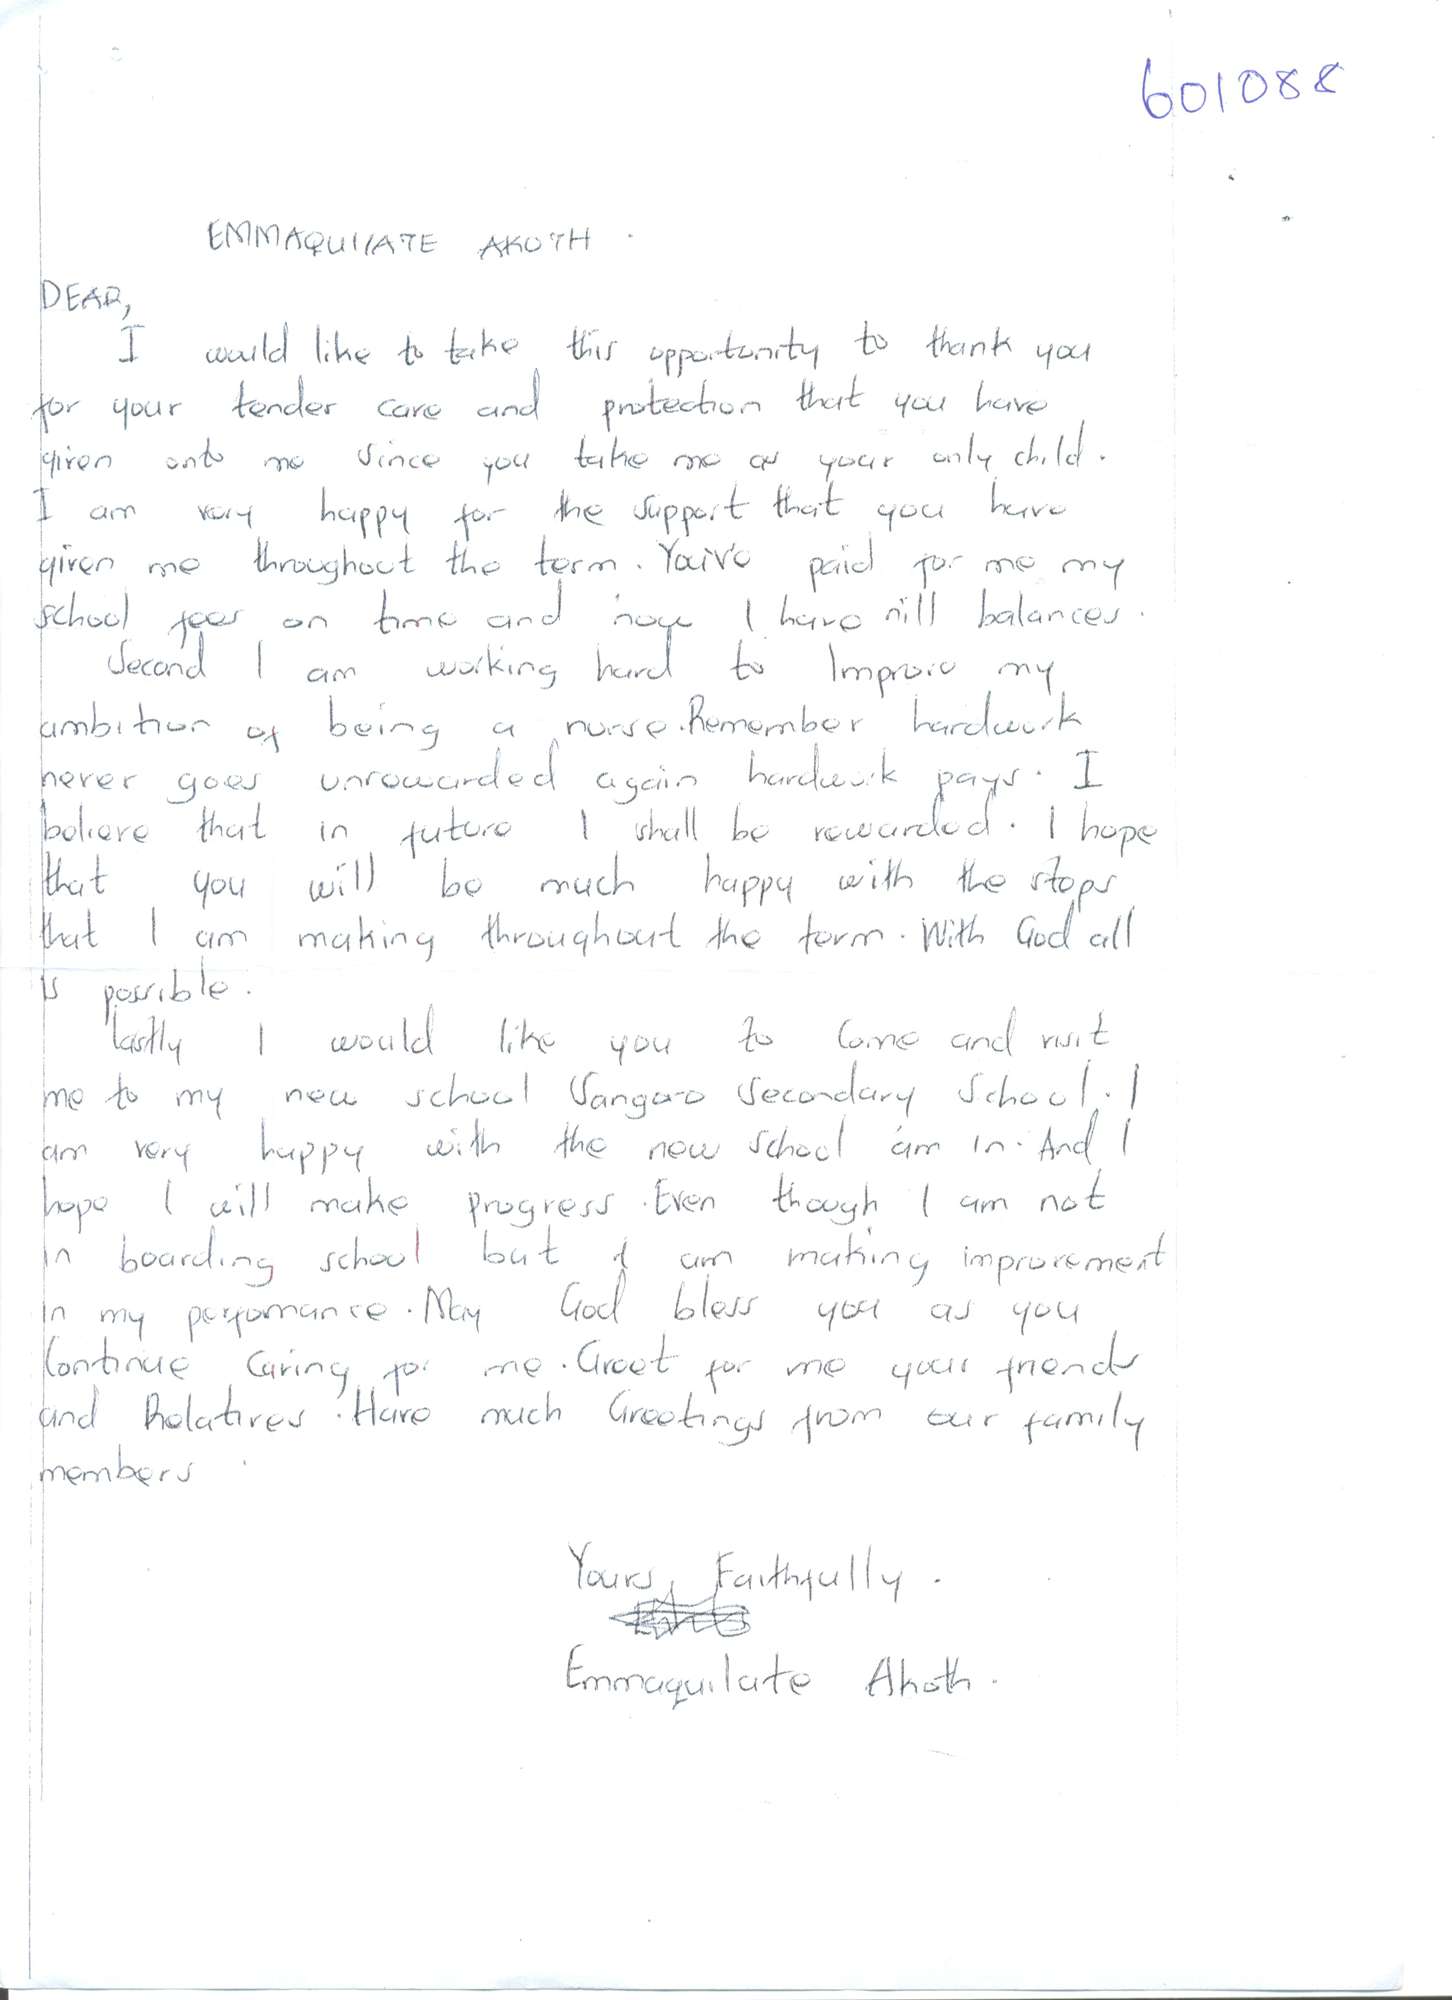 601088
EMMAQUILATE AKOTH.
DEAR,
I would like to take this opportunity to thank you
for your tender care and protection that you have
given onto me since you take me as your only child.
I am very happy for the support that you have
given me throughout the term. You've paid for me my
school fees on time and now I have nill balances.
Second I am working hard to Improve my
ambition of being a nurse. Remember hardwork
never goes unrewarded again hardwork pays. I
believe that in future I shall be rewarded. I hope
that you will be much happy with the steps
that I am making throughout the term. With God all
is possible.
Lastly I would like you to come and visit
me to my new school Sangoro Secondary School. I
am very happy with the new school am in. And I
hope I will make progress. Even though I am not
in boarding school but I am making improvement
in my perfomance. May God bless you as you
Continue Caring for me. Greet for me your friends
and Relatives. Have much Greetings from our family
members.
Yours, Faithfully.
Emmaquilate Akoth.